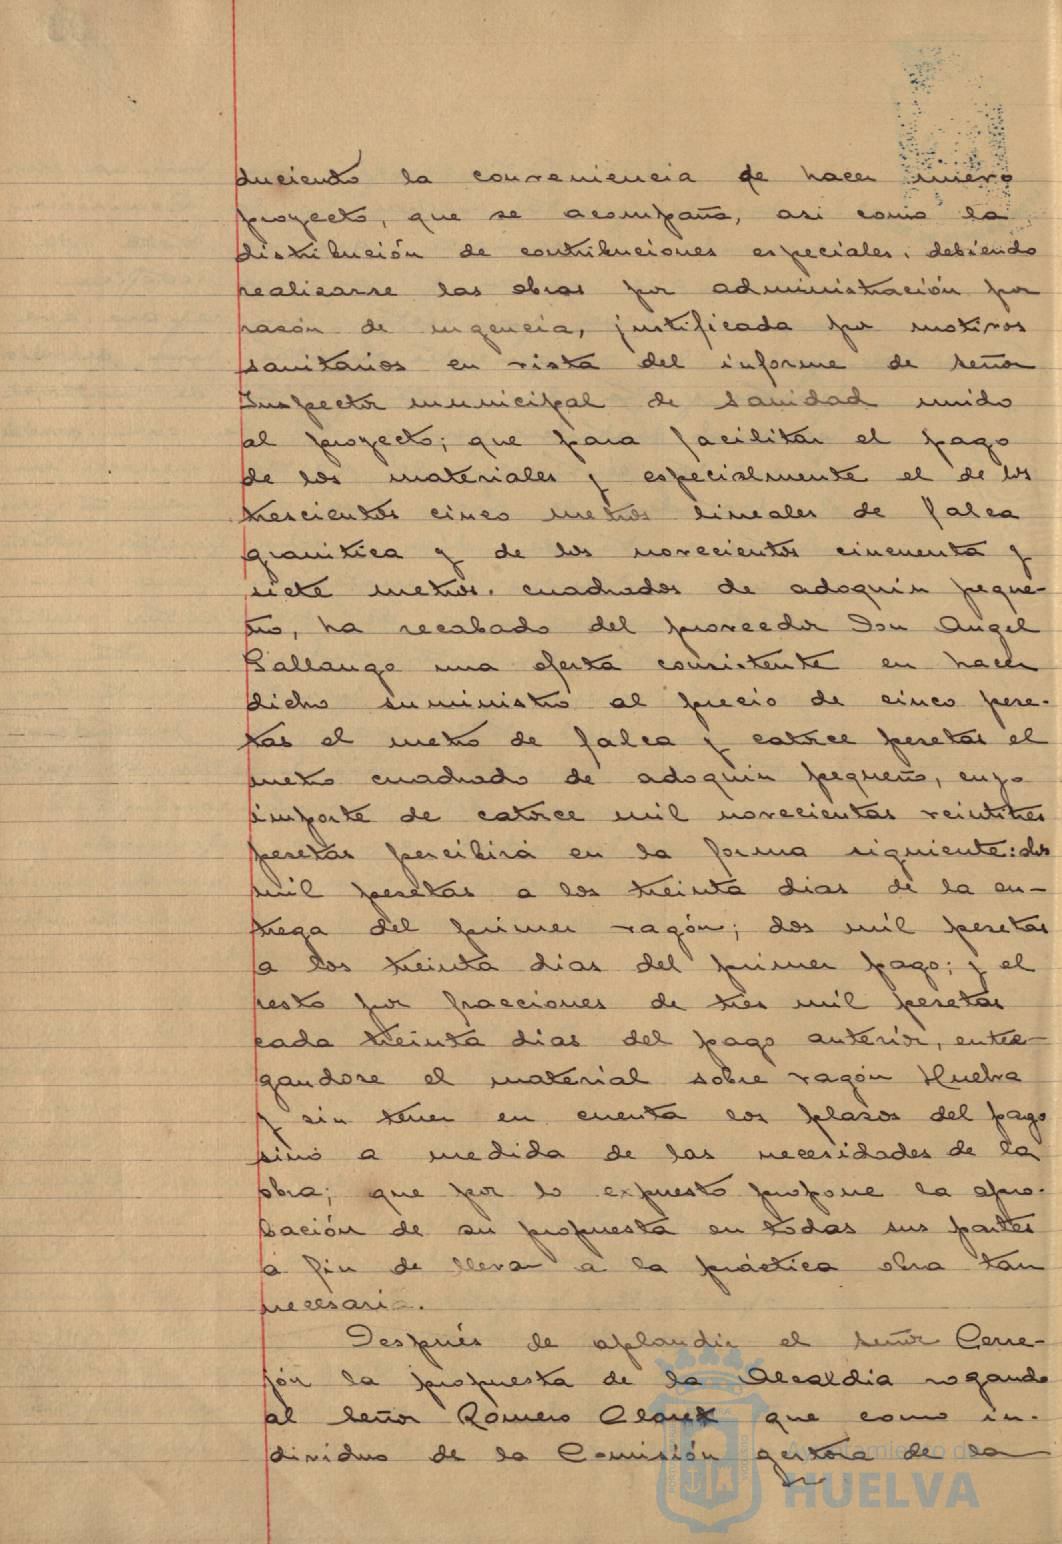 duciendo la conveniencia de hacer nuevo
proyecto, que se acompaña, asi como la
distribución de contribuciones especiales, debiendo
realizarse las obras por administración por
razón de urgencia, justificada por motivos
sanitarios en vista del informe de señor
Inspector municipal de Sanidad unido
al proyecto; que para facilitar el pago
de los materiales y especialmente el de los
trescientos cinco metros lineales de falca
granitica y de los novecientos cincuenta y
siete metros cuadrados de adoquin peque-
ño, ha recabado del proveedor Don Angel
Gallango una oferta consistente en hacer
dicho suministro al precio de cinco pese-
tas el metro de falca y catorce pesetas el
metro cuadrado de adoquin pequeño, cuyo
importe de catorce mil novecientas veintitres
pesetas percibirá en la forma siguiente: dos
mil pesetas a los treinta dias de la en-
trega del primer vagón; dos mil pesetas
a los treinta dias del primer pago; y el
resto por fracciones de tres mil pesetas
cada treinta dias del pago anterior, entre-
gandose el material sobre vagón Huelva
y sin tener en cuenta los plazos del pago
sinó a medida de las necesidades de la
obra; que por lo expuesto propone la apro-
bación de su propuesta en todas sus partes
a fin de llevar a la práctica obra tan
necesaria.
Después de aplaudir el señor Cerre-
jón la propuesta de la Alcaldia rogando
al señor Romero Claret que como in-
dividuo de la Comisión gestora de la
Ayuntamiento de
HUELVA